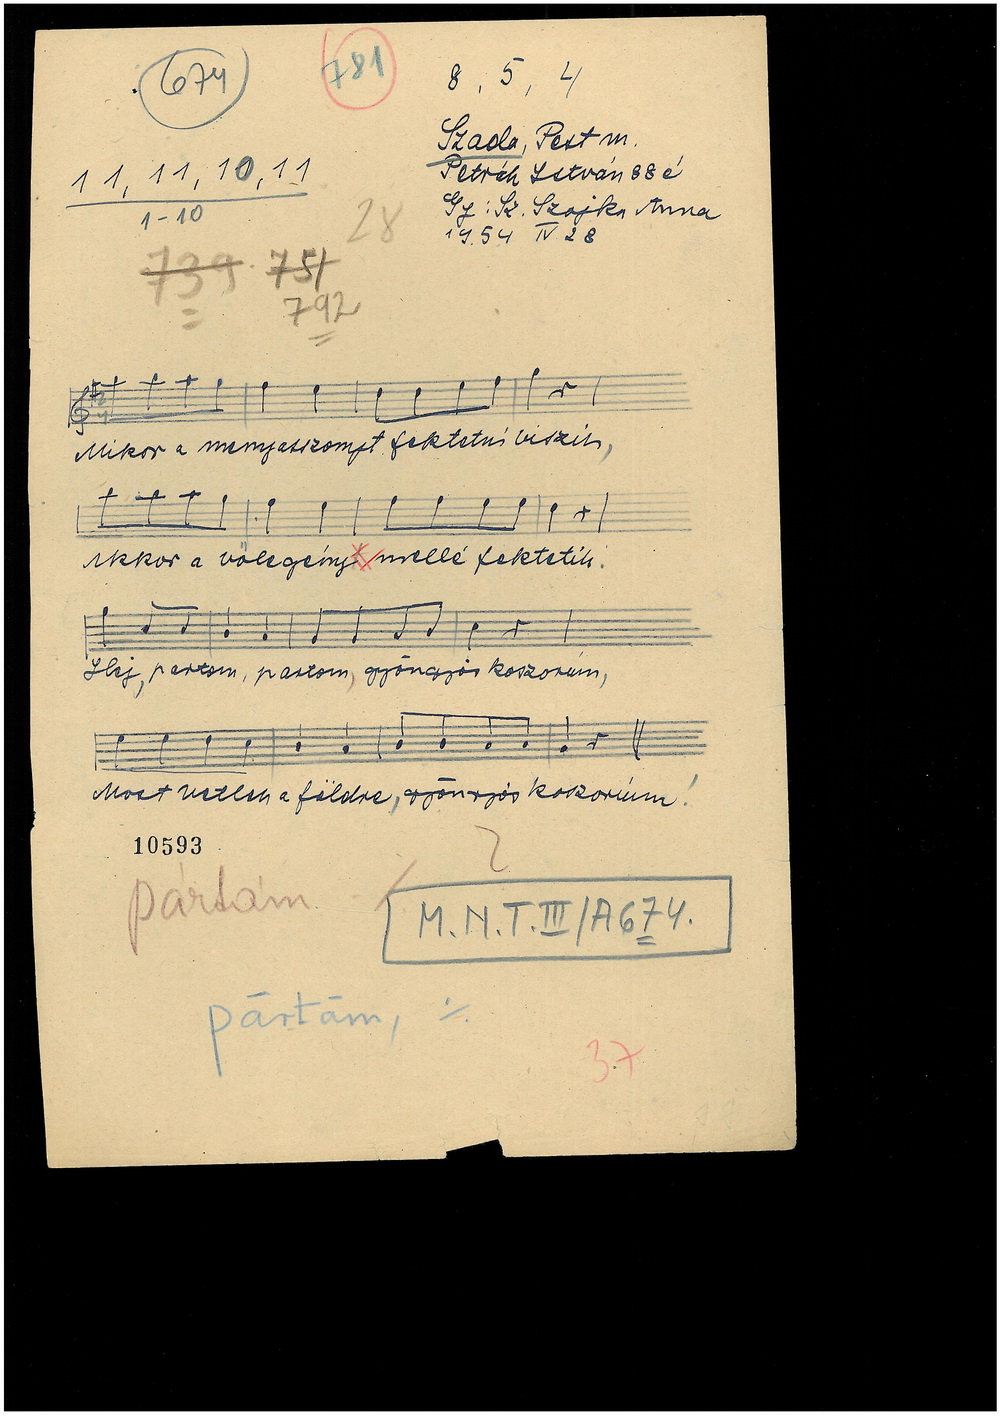 674
781
8, 5, 4
Szada, Pest m.
11, 11, 10, 11
Petrák István 88 é
1-10
Gy: Sz. Szojka Anna
28
1954 IV 28
739 751
792
2
4
Mikor a menyasszonyt fektetni viszik,
Akkor a vőlegényt mellé fektetik.
Hej, partom, partom, gyöngyös koszorúm,
Most vetlek a földre, gyöngyös koszorúum!
10593
2
pártám
M.N.T. III/A 674.
pártám, ·/.
37